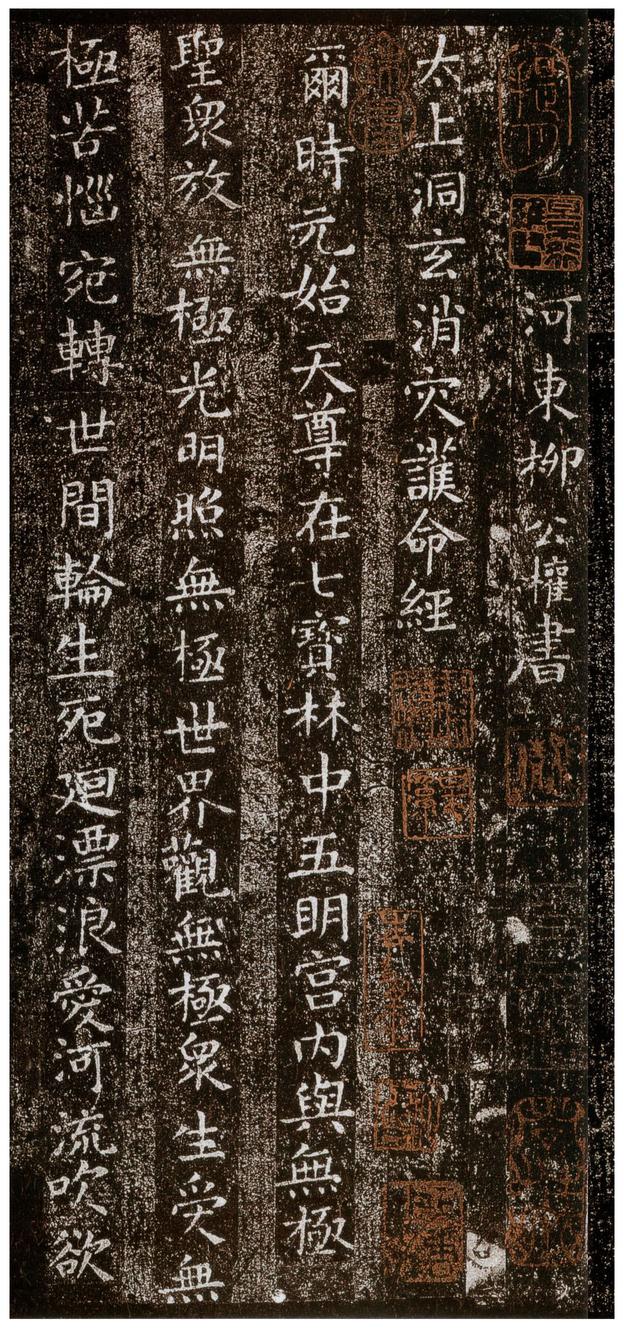 河東柳公權書
太上洞玄消灾護命經
爾時元始天尊在七寶林中五明宮内與無極
聖衆放無極光明照無極世界觀無極衆生受無
極苦惱宛轉世間輪生死廻漂浪愛河流吹欲